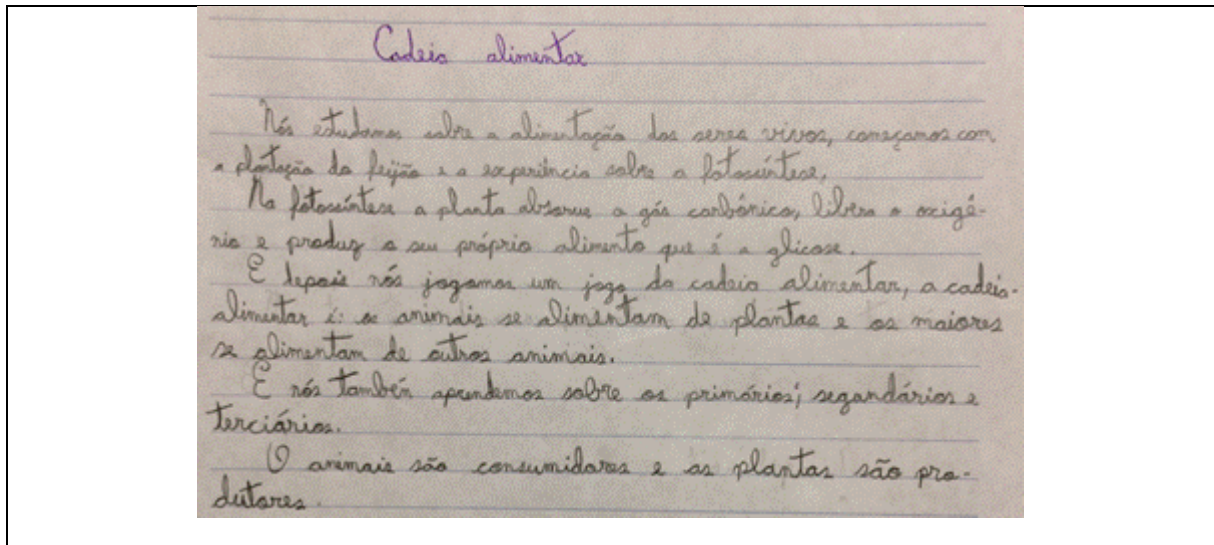 Cadeia alimentar
Nós estudamos sobre a alimentação dos seres vivos, começamos com
a plantação do feijão e a experiência sobre a fotossíntese,
Na fotossíntese a planta absorve o gás carbônico, libera o oxigê-
nio e produz o seu próprio alimento que é a glicose.
E depois nós jogamos um jogo da cadeia alimentar, a cadeia-
alimentar é: os animais se alimentam de plantas e os maiores
se alimentam de outros animais.
E nós tambén aprendemos sobre os primários; segandários e
terciários.
O animais são consumidores e as plantas são pro-
dutores.